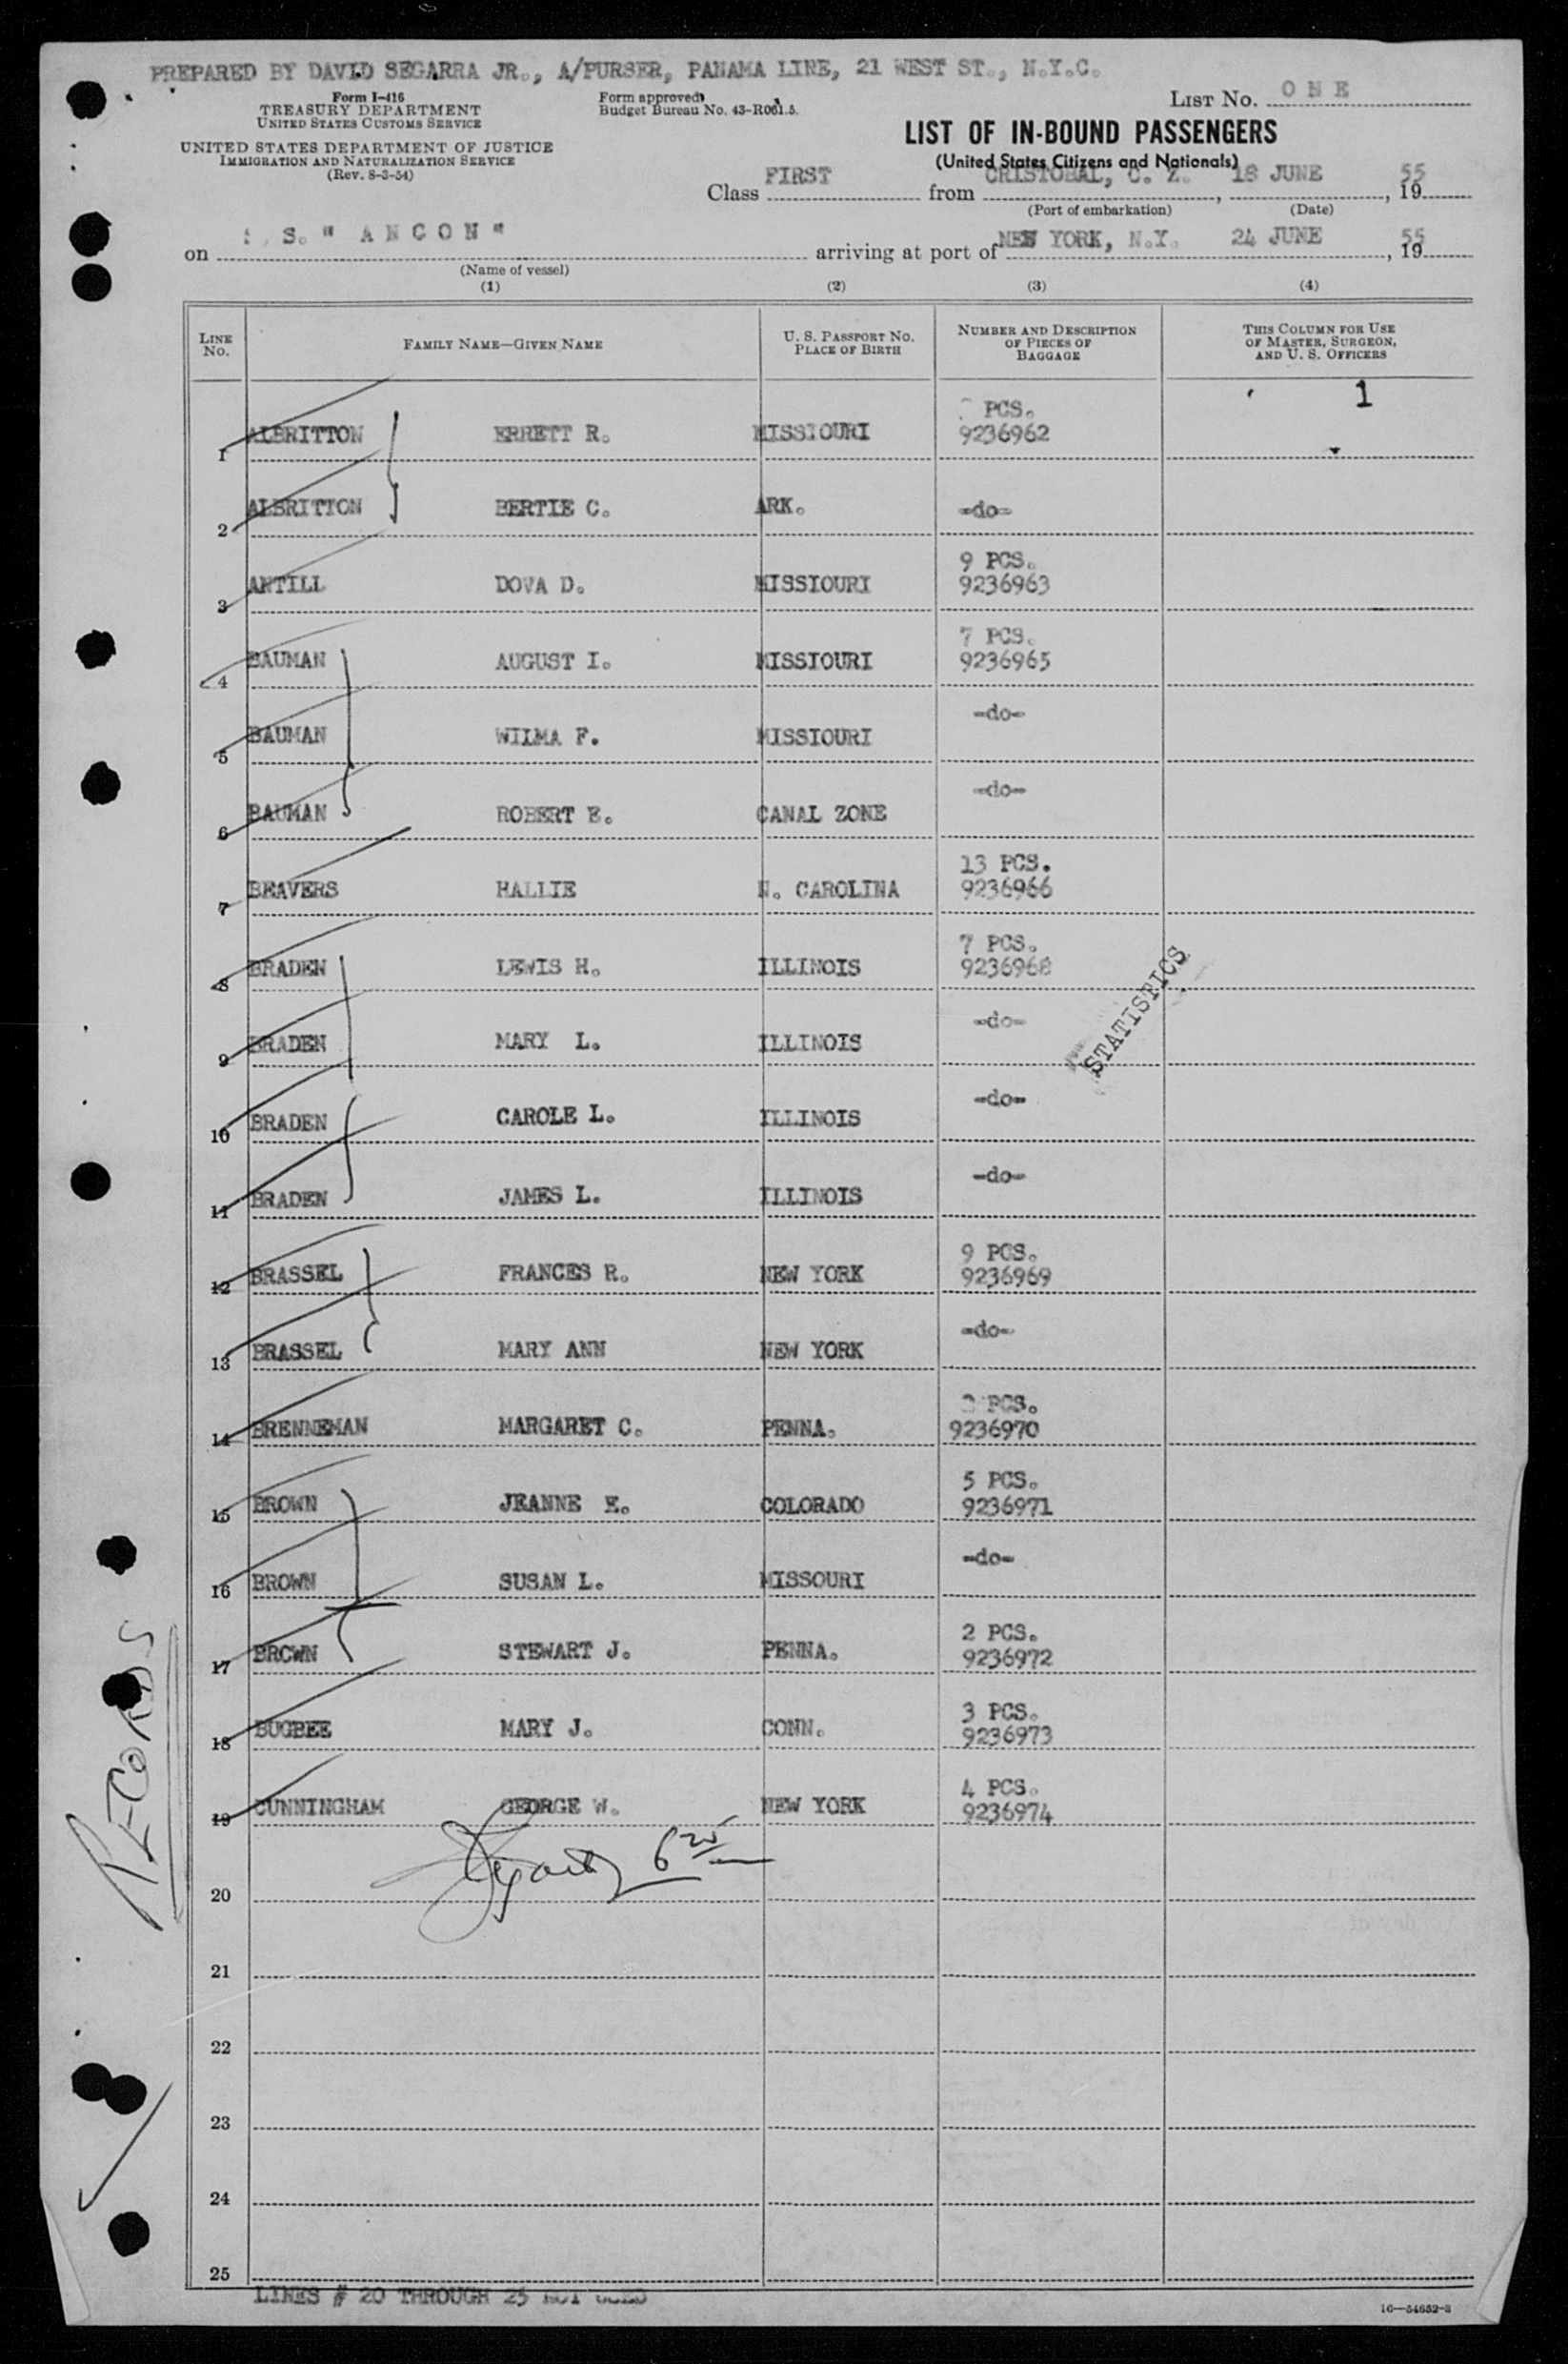 PREPARED BY DAVID SEGARRA JR., A/PURSER, PANAMA LINE, 21 WEST ST., N.Y.C.
Form I-416
TREASURY DEPARTMENT
UNITED STATES CUSTOMS SERVICE
UNITED STATES DEPARTMENT OF JUSTICE
IMMIGRATION AND NATURALIZATION SERVICE
(Rev. 8-3-54)
Form approved
Budget Bureau No. 43-R061.5.
LIST NO. ONE
LIST OF IN-BOUND PASSENGERS
(United States Citizens and Nationals)
Class FIRST from CRISTOBAL, C. Z., 18 JUNE, 1955
(Port of embarkation) (Date)
on S. "ANCON" arriving at port of NEW YORK, N.Y. 24 JUNE, 1955
(Name of vessel)
(1) (2) (3) (4)
LINE NO. FAMILY NAME—GIVEN NAME U. S. PASSPORT NO. PLACE OF BIRTH NUMBER AND DESCRIPTION OF PIECES OF BAGGAGE THIS COLUMN FOR USE OF MASTER, SURGEON, AND U. S. OFFICERS
PCS. 1
1 ALBRITTON ERRETT R. MISSIOURI 9236962
2 ALBRITTON BERTIE C. ARK. -do-
9 PCS.
3 ANTILL DOVA D. MISSIOURI 9236963
7 PCS.
4 BAUMAN AUGUST I. MISSIOURI 9236965
5 BAUMAN WILMA F. MISSIOURI -do-
6 BAUMAN ROBERT E. CANAL ZONE -do-
13 PCS.
7 BEAVERS HALLIE N. CAROLINA 9236966
7 PCS.
8 BRADEN LEWIS H. ILLINOIS 9236968
9 BRADEN MARY L. ILLINOIS -do-
STATISTICS
10 BRADEN CAROLE L. ILLINOIS -do-
11 BRADEN JAMES L. ILLINOIS -do-
9 PCS.
12 BRASSEL FRANCES R. NEW YORK 9236969
13 BRASSEL MARY ANN NEW YORK -do-
PCS.
14 BRENNEMAN MARGARET C. PENNA. 9236970
5 PCS.
15 BROWN JEANNE E. COLORADO 9236971
16 BROWN SUSAN L. MISSOURI -do-
2 PCS.
17 BROWN STEWART J. PENNA. 9236972
3 PCS.
18 BUGBEE MARY J. CONN. 9236973
4 PCS.
19 CUNNINGHAM GEORGE W. NEW YORK 9236974
RECORDS
20
21
22
23
24
25
LINES # 20 THROUGH 25 NOT USED